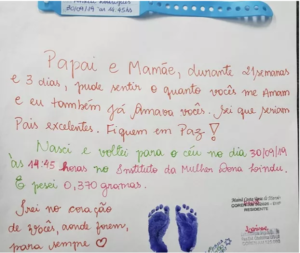 30/09/19 às 14:45hs
Papai e Mamãe, durante 21 semanas
e 3 dias, pude sentir o quanto vocês me Amam
e eu também já Amava vocês. Sei que seriam
Pais excelentes. Fiquem em Paz!
Nasci e voltei para o céu no dia 30/09/19
às 14:45 horas no Instituto da Mulher Dona Lindu.
E pesei 0,370 gramas.
Irei no coração
de vocês, aonde forem,
para sempre ♡
RESIDENTE